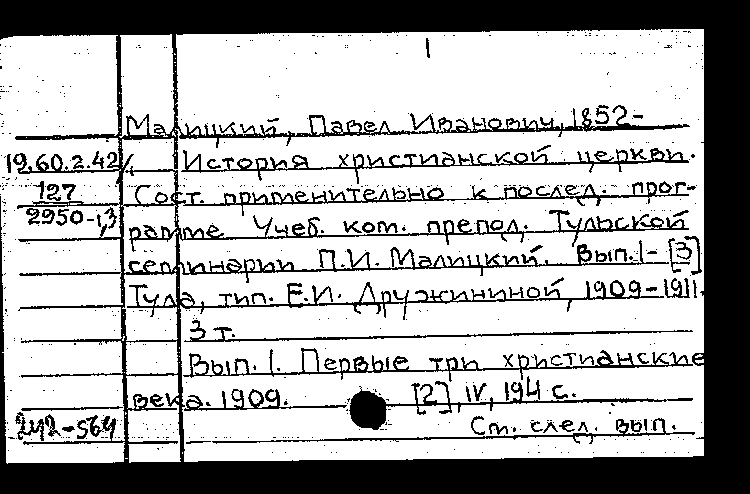 1
Малицкий, Павел Иванович, 1852-
19.60.2.42/1. История христианской церкви.
127 Сост. применительно к послед. прог-
2950-1,3 рамме Учеб. ком. препод. Тульской
семинарии П.И. Малицкий. Вып.1-[3]
Тула, тип. Е.И. Дружининой, 1909-1911.
3 т.
Вып.1. Первые три христианские
века. 1909. [2], IV, 194 с.
242-564 См. след. вып.